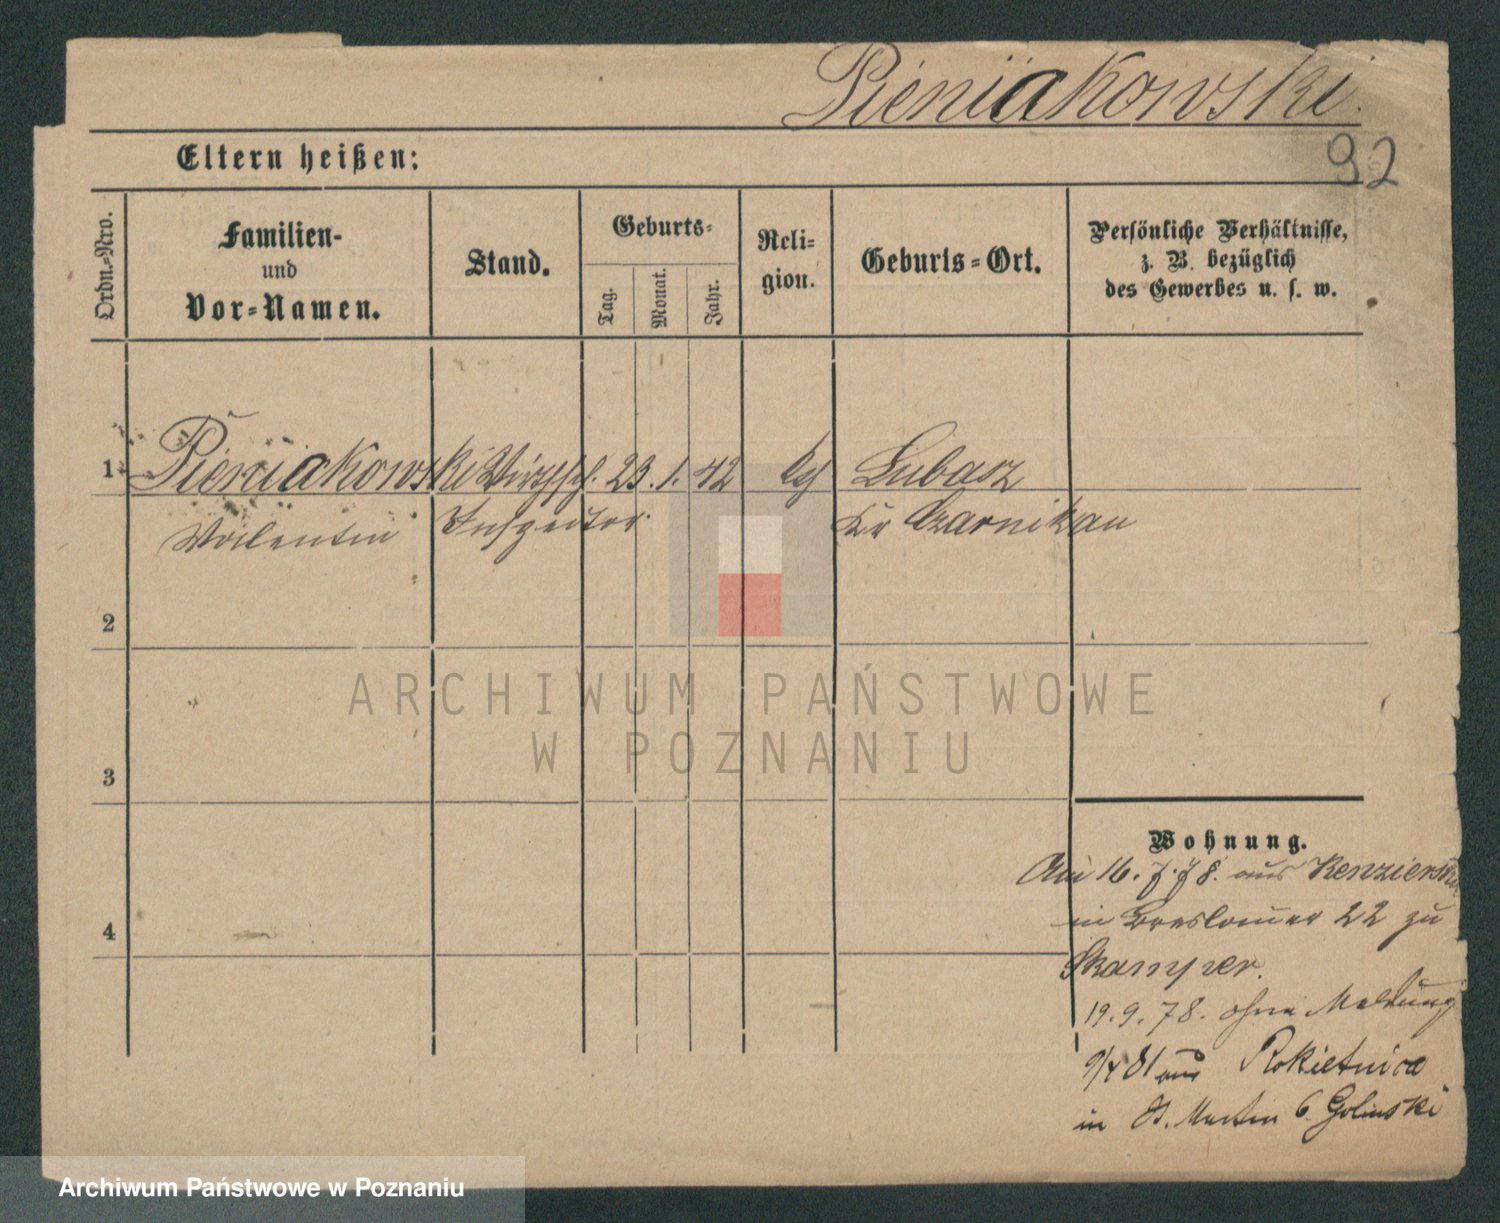 Pieniakowski.
92
Eltern heißen:
Ordn.-Nro.
Familien-
und
Vor-Namen.
Stand.
Geburts-
Tag.
Monat.
Jahr.
Reli-
gion.
Geburts-Ort.
Persönliche Verhältnisse,
z. B. bezüglich
des Gewerbes u. s. w.
1 Pieniakowski Wirthsch. 23. 1. 42 Lubasz
Valentin Inspector Kr Czarnikau
2
3
4
ARCHIWUM PAŃSTWOWE
W POZNANIU
Wohnung.
Am 16. 7. 78. aus
in Breslauer 22 zu
Skamper.
19. 9. 78. ohne Meldung
9/4 81 aus Rokietnica
in St. Martin 6. Golinski
Archiwum Państwowe w Poznaniu